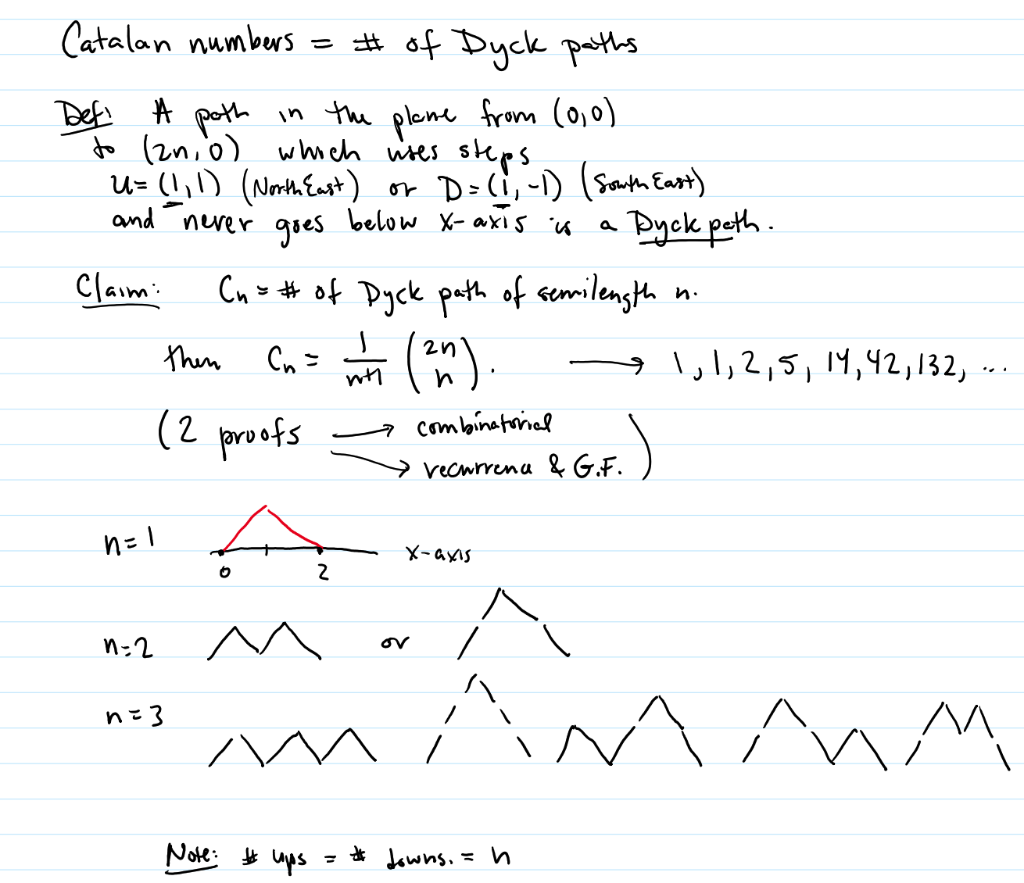 Catalan numbers = # of Dyck paths
Def: A path in the plane from (0,0)
to (2n,0) which uses steps
U=(1,1) (NorthEast) or D=(1,-1) (SouthEast)
and never goes below x-axis is a Dyck path.
Claim: Cn = # of Dyck path of semilength n.
then Cn = 1/(n+1) (2n n). → 1,1,2,5,14,42,132,...
(2 proofs → combinatorial
→ recurrence & G.F.)
n=1 x-axis
0 2
n=2 or
n=3
Note: # ups = # downs. = n